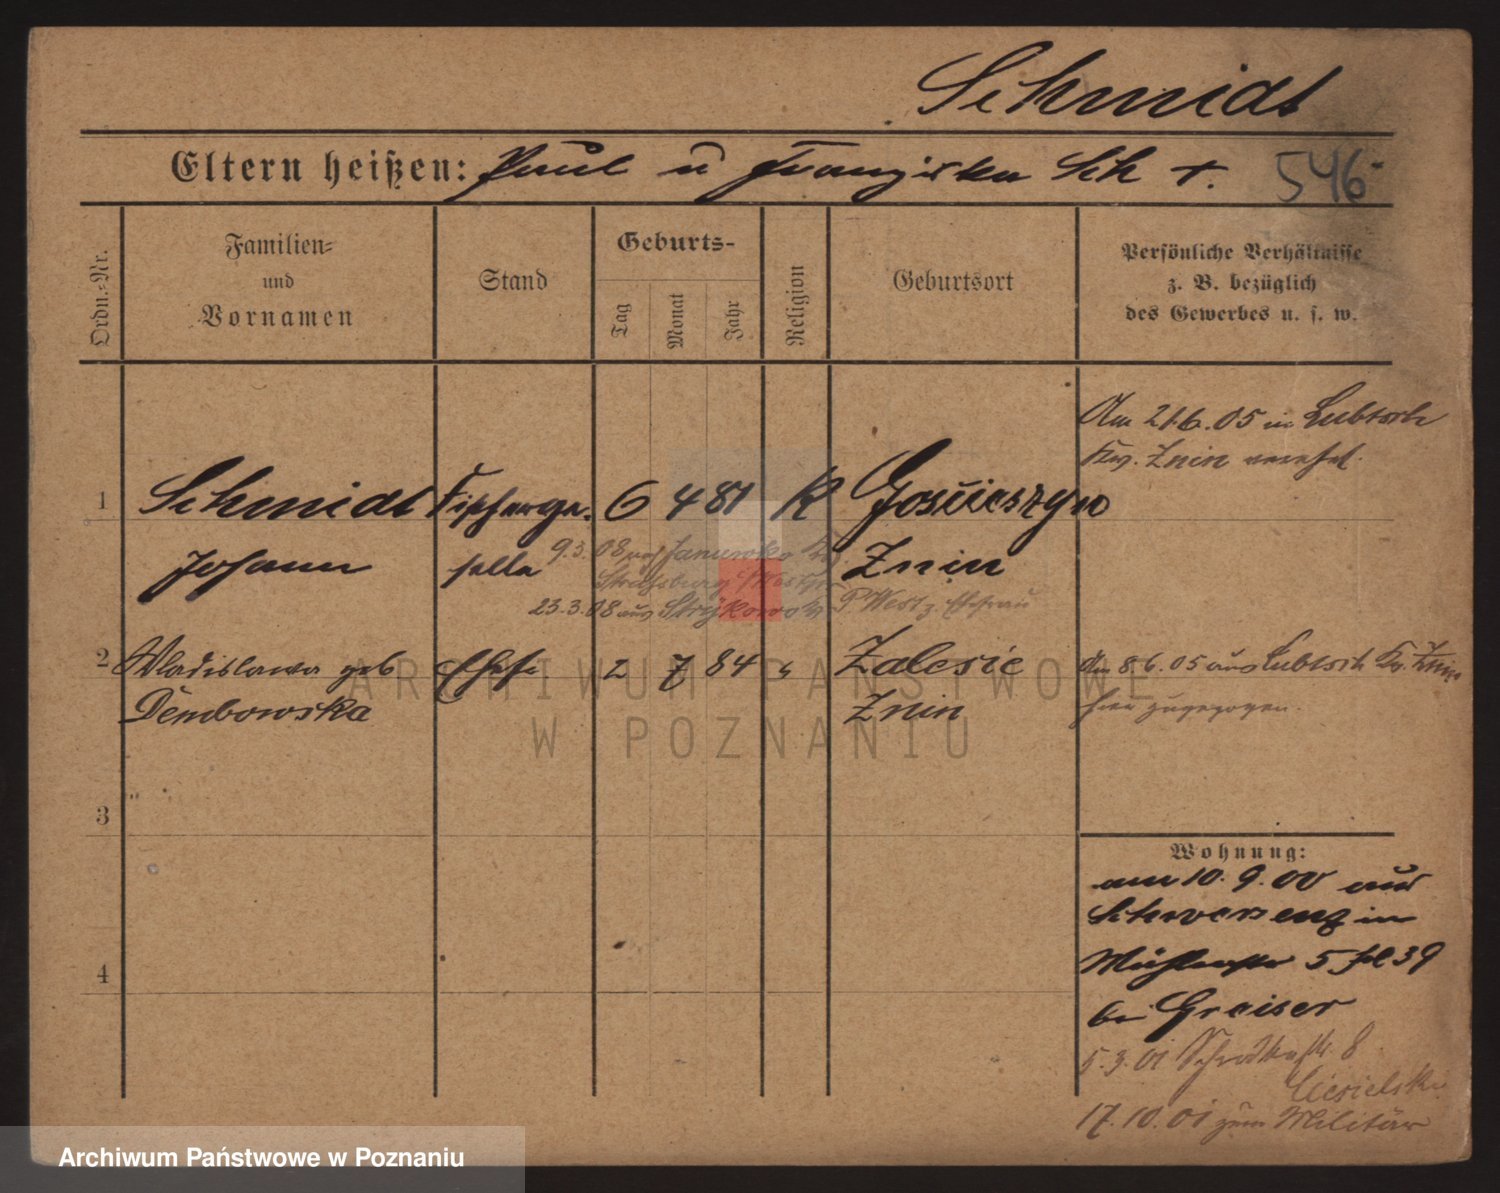 Schmidt
Eltern heißen: Paul u Franziska Sch †.
546
Ordn.-Nr.
Familien-
und
Vornamen
Stand
Geburts-
Tag
Monat
Jahr
Religion
Geburtsort
Persönliche Verhältnisse
z. B. bezüglich
des Gewerbes u. s. w.
Am 21.6.05 in Lubtsch
Kr. Znin vereh.
1
Schmidt Tischlerge. 6 4 81 K
Johann selle Znin
9.3.08
Strasburg Westpr
23.3.08 aus Strykowo Kr. P. West z. Ehefrau
2 Wladislawa geb Ehefr 2 7 84 " Zalesie
Dembowska Znin
Am 8.6.05 aus Lubtsch Kr. Znin
hier zugezogen.
3
4
Wohnung:
am 10.9.00 aus
Schwersenz in
Mühlenstr 5 39
bei Greiser
5.3.01 8
Ciesielski
17.10.01 zum Militär
ARCHIWUM PAŃSTWOWE
W POZNANIU
Archiwum Państwowe w Poznaniu